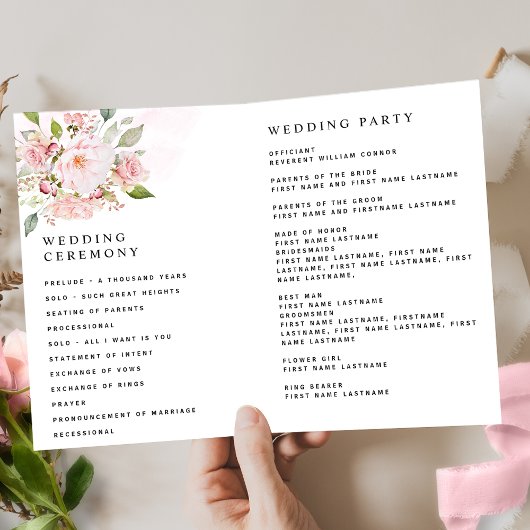 WEDDING
CEREMONY
PRELUDE - A THOUSAND YEARS
SOLO - SUCH GREAT HEIGHTS
SEATING OF PARENTS
PROCESSIONAL
SOLO - ALL I WANT IS YOU
STATEMENT OF INTENT
EXCHANGE OF VOWS
EXCHANGE OF RINGS
PRAYER
PRONOUNCEMENT OF MARRIAGE
RECESSIONAL
WEDDING PARTY
OFFICIANT
REVERENT WILLIAM CONNOR
PARENTS OF THE BRIDE
FIRST NAME AND FIRST NAME LASTNAME
PARENTS OF THE GROOM
FIRST NAME AND FIRSTNAME LASTNAME
MADE OF HONOR
FIRST NAME LASTNAME
BRIDESMAIDS
FIRST NAME LASTNAME, FIRSTNAME
LASTNAME, FIRST NAME LASTNAME, FIRST
NAME LASTNAME,
BEST MAN
FIRST NAME LASTNAME
GROOMSMEN
FIRST NAME LASTNAME, FIRSTNAME
LASTNAME, FIRST NAME LASTNAME, FIRST
NAME LASTNAME
FLOWER GIRL
FIRST NAME LASTNAME
RING BEARER
FIRST NAME LASTNAME